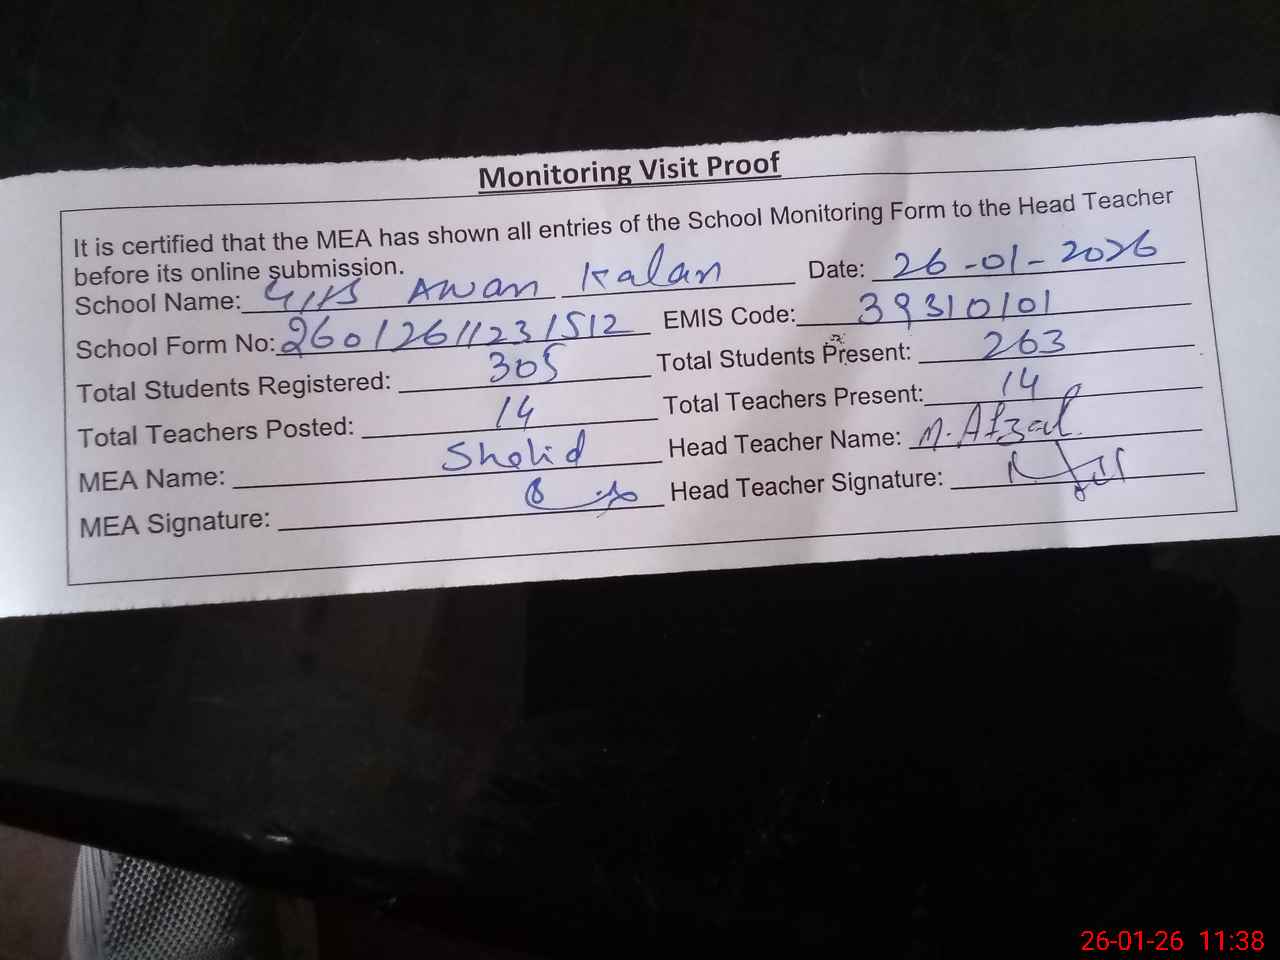 Monitoring Visit Proof
It is certified that the MEA has shown all entries of the School Monitoring Form to the Head Teacher
before its online submission.
School Name: GHS Awan Kalan Date: 26-01-2026
School Form No: 26012611231512 EMIS Code: 39310101
Total Students Registered: 305 Total Students Present: 263
Total Teachers Posted: 14 Total Teachers Present: 14
MEA Name: Shahid Head Teacher Name: M. Afzal
MEA Signature: Head Teacher Signature:
26-01-26 11:38